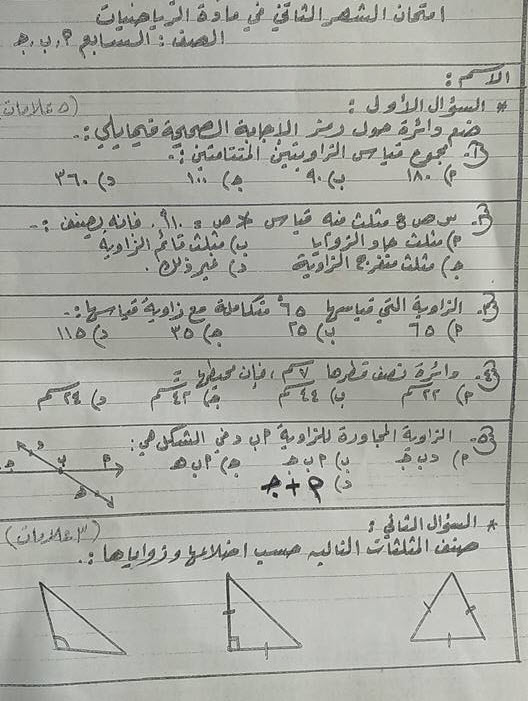 امتحان الشهر الثاني في مادة الرياضيات
الصف : السابع أ، ب، جـ
الاسم :
* السؤال الأول : (٥ علامات)
ضع دائرة حول رمز الاجابة الصحيحة فيمايلي :-
١- مجموع قياس الزاويتين المتتامتين :-
أ) ١٨٠ ب) ٩٠ جـ) ١٠٠ د) ٣٦٠
٢- س ص ع مثلث فيه قياس ∠ ص = ١١٠°، فانه يصنف :-
أ) مثلث حاد الزوايا ب) مثلث قائم الزاوية
جـ) مثلث منفرج الزاوية د) غير ذلك .
٣- الزاوية التي قياسها ٦٥° متكاملة مع زاوية قياسها :-
أ) ٦٥ ب) ٢٥ جـ) ٣٥ د) ١١٥
٤- دائرة نصف قطرها ٧ سم ، فإن محيطها =
أ) ٢٢ سم ب) ٤٤ سم جـ) ٤٢ سم د) ٢٤ سم
٥- الزاوية المجاورة للزاوية أ ب د في الشكل هي :
أ) د ب جـ ب) أ ب جـ جـ) أ ب هـ
د) أ + جـ
د
جـ ب أ
هـ
* السؤال الثاني : (٣ علامات)
صنف المثلثات التاليه حسب اضلاعها وزواياها :-